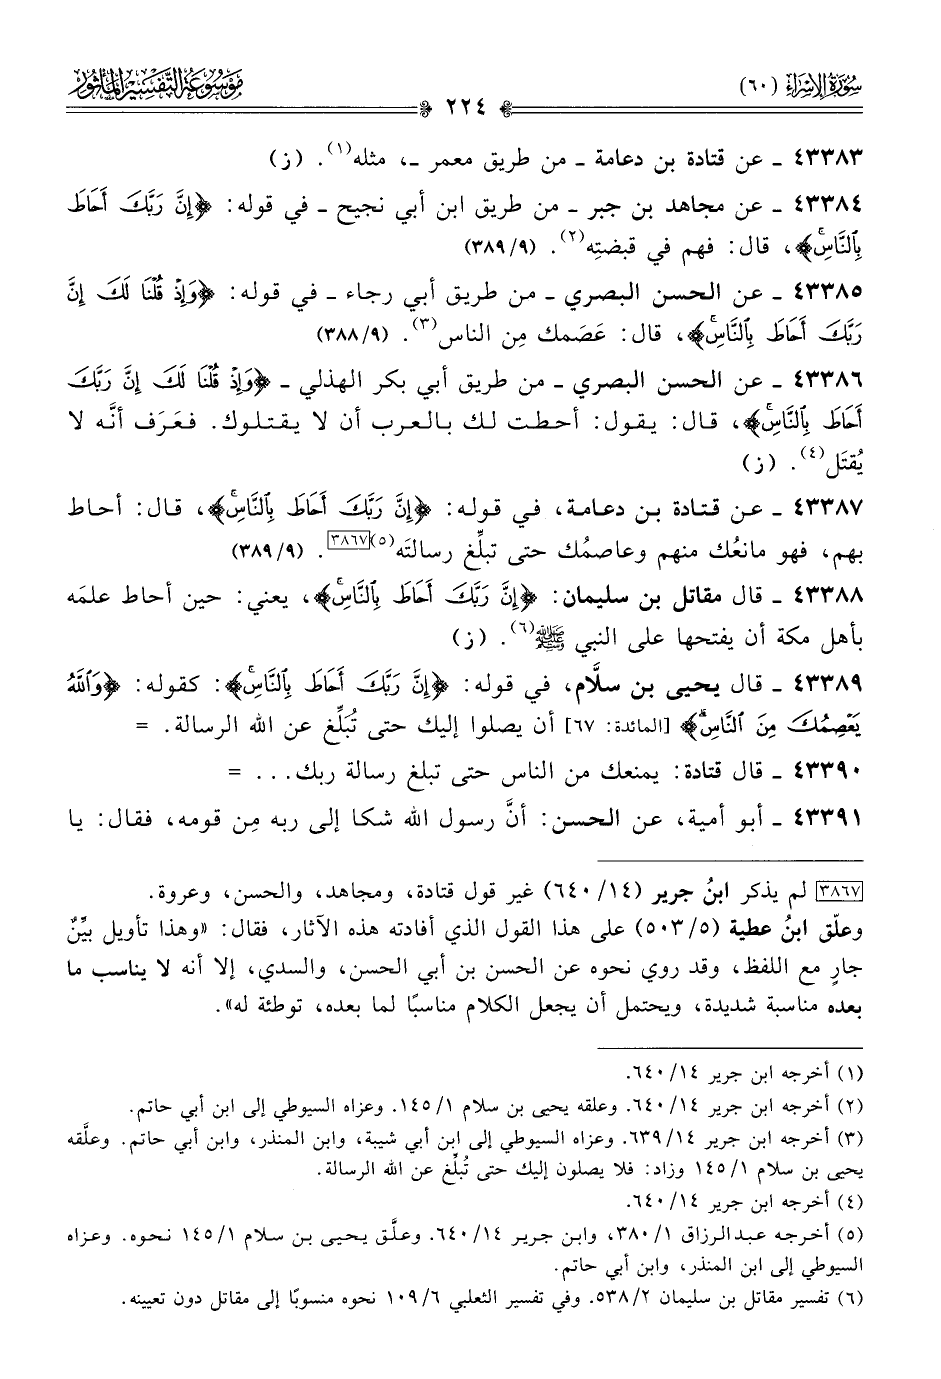 سُورَةُ الإِسْرَاءِ (٦٠)
٢٢٤
مَوْسُوعَةُ التَّفْسِيرِ المَأْثُورِ
٤٣٣٨٣ ـ عن قتادة بن دعامة ـ من طريق معمر ـ، مثله(١). (ز)
٤٣٣٨٤ ـ عن مجاهد بن جبر ـ من طريق ابن أبي نجيح ـ في قوله: ﴿إِنَّ رَبَّكَ أَحَاطَ
بِٱلنَّاسِۚ﴾، قال: فهم في قبضتِه(٢). (٩/ ٣٨٩)
٤٣٣٨٥ ـ عن الحسن البصري ـ من طريق أبي رجاء ـ في قوله: ﴿وَإِذۡ قُلۡنَا لَكَ إِنَّ
رَبَّكَ أَحَاطَ بِٱلنَّاسِۚ﴾، قال: عَصَمك مِن الناس(٣). (٩/ ٣٨٨)
٤٣٣٨٦ ـ عن الحسن البصري ـ من طريق أبي بكر الهذلي ـ ﴿وَإِذۡ قُلۡنَا لَكَ إِنَّ رَبَّكَ
أَحَاطَ بِٱلنَّاسِۚ﴾، قال: يقول: أحطت لك بالعرب أن لا يقتلوك. فعَرَف أنَّه لا
يُقتَل(٤). (ز)
٤٣٣٨٧ ـ عن قتادة بن دعامة، في قوله: ﴿إِنَّ رَبَّكَ أَحَاطَ بِٱلنَّاسِۚ﴾، قال: أحاط
بهم، فهو مانعُك منهم وعاصمُك حتى تبلِّغ رسالتَه(٥)[٣٨٦٧]. (٩/ ٣٨٩)
٤٣٣٨٨ ـ قال مقاتل بن سليمان: ﴿إِنَّ رَبَّكَ أَحَاطَ بِٱلنَّاسِۚ﴾، يعني: حين أحاط علمَه
بأهل مكة أن يفتحها على النبي ﷺ(٦). (ز)
٤٣٣٨٩ ـ قال يحيى بن سلَّام، في قوله: ﴿إِنَّ رَبَّكَ أَحَاطَ بِٱلنَّاسِۚ﴾: كقوله: ﴿وَٱللَّهُ
يَعۡصِمُكَ مِنَ ٱلنَّاسِۗ﴾ [المائدة: ٦٧] أن يصلوا إليك حتى تُبَلِّغ عن الله الرسالة. =
٤٣٣٩٠ ـ قال قتادة: يمنعك من الناس حتى تبلغ رسالة ربك... =
٤٣٣٩١ ـ أبو أمية، عن الحسن: أنَّ رسول الله شكا إلى ربه مِن قومه، فقال: يا
[٣٨٦٧] لم يذكر ابنُ جرير (١٤/ ٦٤٠) غير قول قتادة، ومجاهد، والحسن، وعروة.
وعلّق ابنُ عطية (٥/ ٥٠٣) على هذا القول الذي أفادته هذه الآثار، فقال: «وهذا تأويل بيِّنٌ
جارٍ مع اللفظ، وقد روي نحوه عن الحسن بن أبي الحسن، والسدي، إلا أنه لا يناسب ما
بعده مناسبة شديدة، ويحتمل أن يجعل الكلام مناسبًا لما بعده، توطئة له».
(١) أخرجه ابن جرير ١٤/ ٦٤٠.
(٢) أخرجه ابن جرير ١٤/ ٦٤٠. وعلقه يحيى بن سلام ١/ ١٤٥. وعزاه السيوطي إلى ابن أبي حاتم.
(٣) أخرجه ابن جرير ١٤/ ٦٣٩. وعزاه السيوطي إلى ابن أبي شيبة، وابن المنذر، وابن أبي حاتم. وعلَّقه
يحيى بن سلام ١/ ١٤٥ وزاد: فلا يصلون إليك حتى تُبلِّغ عن الله الرسالة.
(٤) أخرجه ابن جرير ١٤/ ٦٤٠.
(٥) أخرجه عبدالرزاق ١/ ٣٨٠، وابن جرير ١٤/ ٦٤٠. وعلَّق يحيى بن سلام ١/ ١٤٥ نحوه. وعزاه
السيوطي إلى ابن المنذر، وابن أبي حاتم.
(٦) تفسير مقاتل بن سليمان ٢/ ٥٣٨. وفي تفسير الثعلبي ٦/ ١٠٩ نحوه منسوبًا إلى مقاتل دون تعيينه.